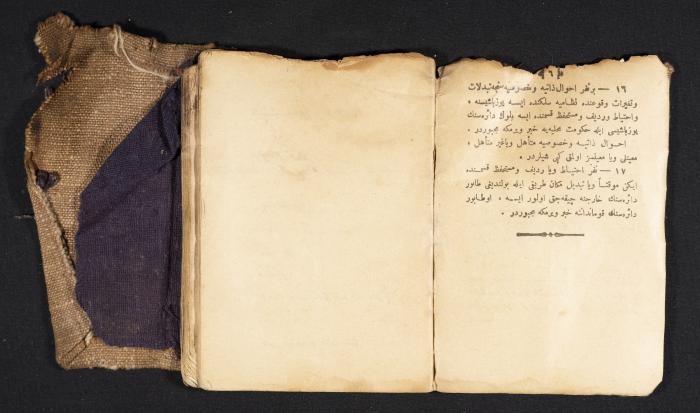 ﴿ ٦ ﴾
١٦ — بر نفر احوال ذاتيه وخصوصيه سنجه تبدلات
وتغيرات وقوعنده نظاميه سلكنده ايسه يوزباشيسنه ،
واحتياط ورديف ومستحفظ قسمنده ايسه بلوك دائره‌سنك
يوزباشيسى ايله حكومت محليه‌يه خبر ويرمكه مجبوردر .
احوال ذاتيه وخصوصيه متأهل وياغير متأهل ،
معينلى ويا معينسز اولمق كبى شيلردر .
١٧ — نفر احتياط ويا رديف ومستحفظ قسمنده
ايكن موقتاً ويا تبديل مكان طريقى ايله بولنديغى طابور
دائره‌سنك خارجنه چيقه‌جق اولور ايسه ، اوطابور
دائره‌سنك قومانداننه خبر ويرمكه مجبوردر .